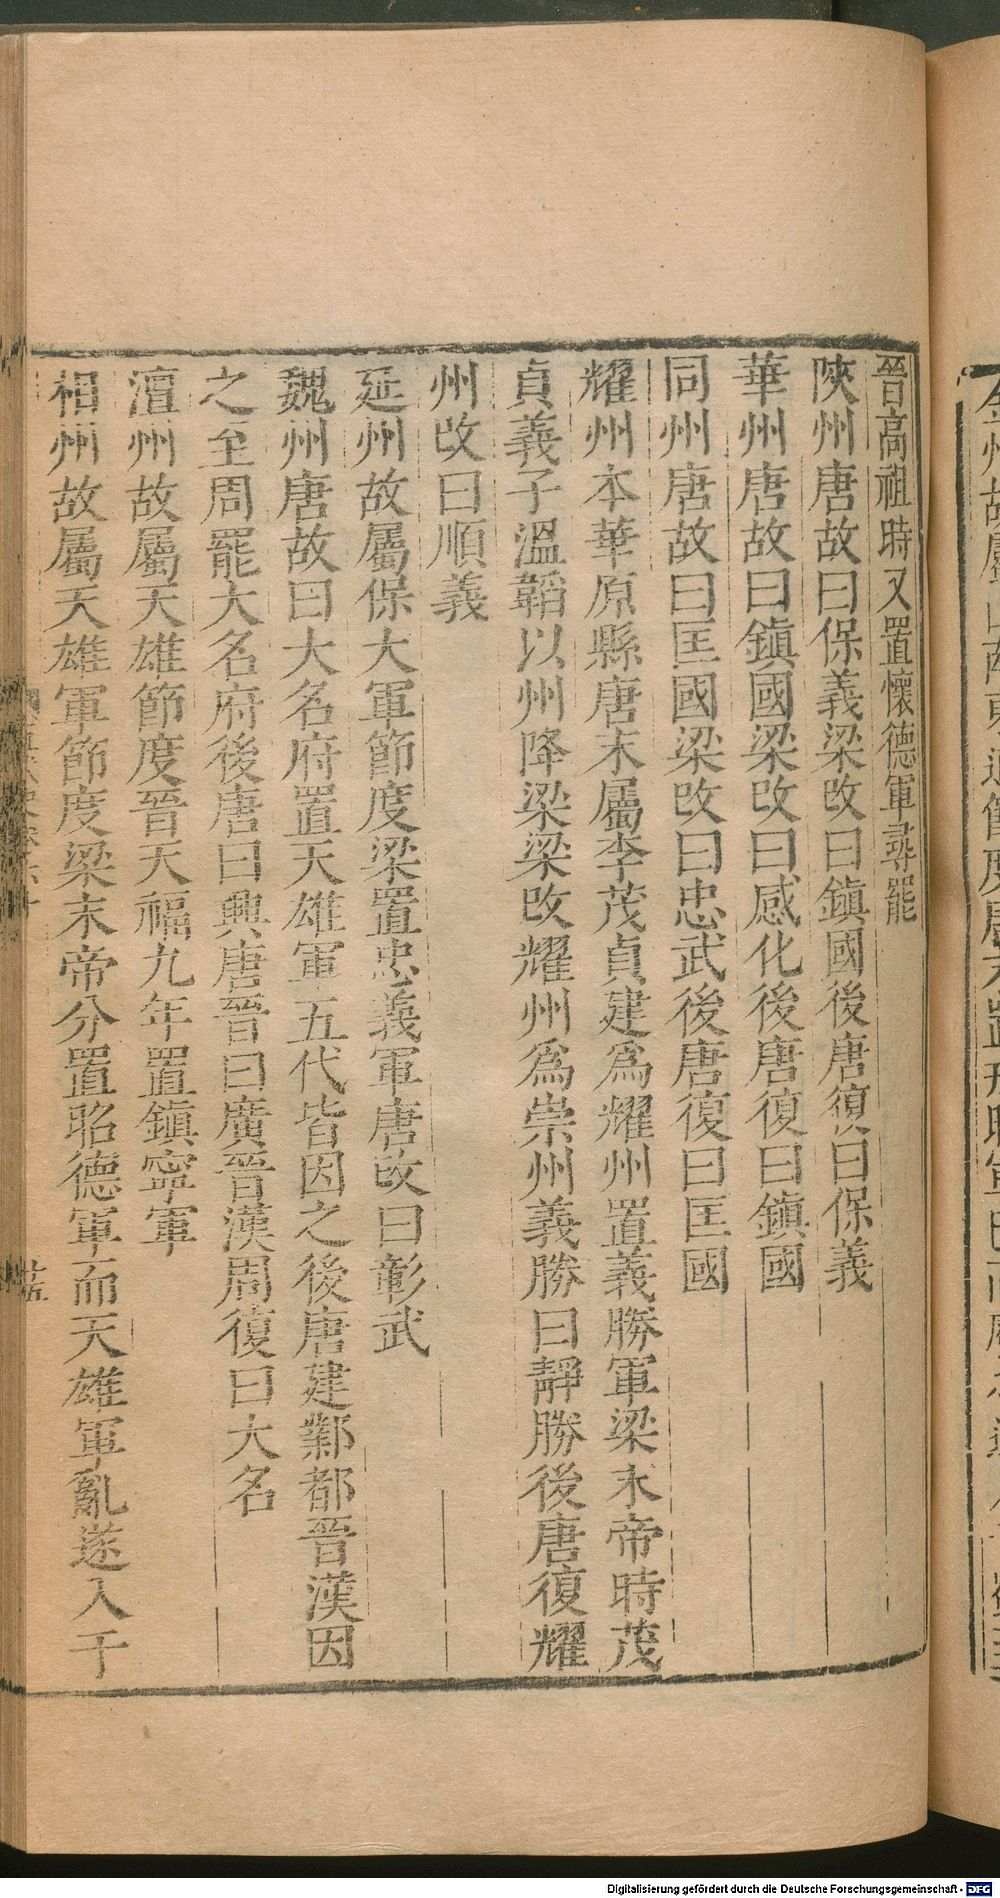 晉高祖時又置懷德軍尋罷
陝州唐故曰保義梁改曰鎮國後唐復曰保義
華州唐故曰鎮國梁改曰感化後唐復曰鎮國
同州唐故曰匡國梁改曰忠武後唐復曰匡國
耀州本華原縣唐末屬李茂貞建爲耀州置義勝軍梁末帝時茂
貞義子溫韜以州降梁梁改耀州爲崇州義勝曰靜勝後唐復耀
州改曰順義
延州故屬保大軍節度梁置忠義軍唐改曰彰武
魏州唐故曰大名府置天雄軍五代皆因之後唐建鄴都晉漢因
之至周罷大名府後唐曰興唐晉曰廣晉漢周復曰大名
澶州故屬天雄節度晉天福九年置鎮寧軍
相州故屬天雄軍節度梁末帝分置昭德軍而天雄軍亂遂入于
Digitalisierung gefördert durch die Deutsche Forschungsgemeinschaft - DFG